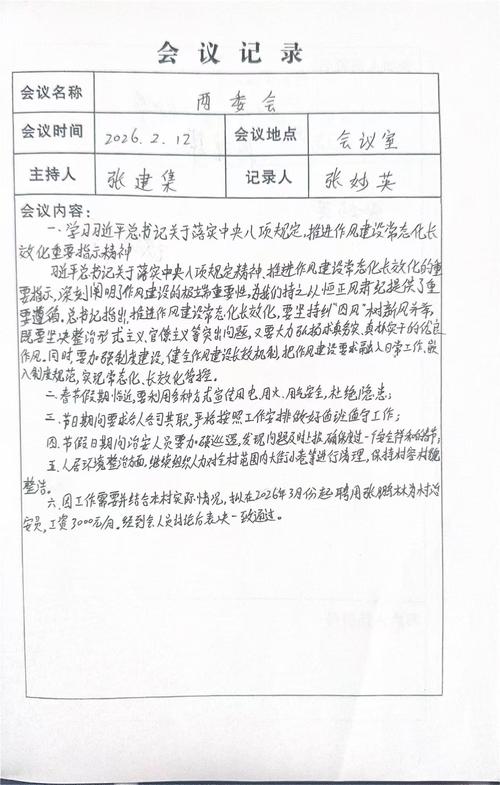 会议记录
会议名称 两委会
会议时间 2026.2.12 会议地点 会议室
主持人 张建集 记录人 张妙英
会议内容：
一、学习习近平总书记关于落实中央八项规定，推进作风建设常态化长
效化重要指示精神
习近平总书记关于落实中央八项规定精神、推进作风建设常态化长效化的重
要指示，深刻阐明了作风建设的极端重要性，为我们持之以恒正风肃纪提供了重
要遵循。总书记指出，推进作风建设常态化长效化，要坚持纠“四风”树新风并举，
既要坚决整治形式主义、官僚主义等突出问题，又要大力弘扬求真务实、真抓实干的优良
作风。同时要加强制度建设，健全作风建设长效机制，把作风建设要求融入日常工作、嵌
入制度规范，实现常态化、长效化管控。
二、春节假期临近，要利用多种方式宣传用电、用火、用气安全，杜绝隐患；
三、节日期间要求各人各司其职，严格按照工作安排做好值班值守工作；
四、节假日期间治安人员要加强巡逻，发现问题及时上报，确保度过一个安全祥和的春节；
五、人居环境整治方面，继续组织人力对全村范围内大街小巷等进行清理，保持村容村貌
整洁。
六、因工作需要并结合本村实际情况，拟在2026年3月份起聘用张鹏木木为村治
安员，工资3000元/月。经到会人员讨论后表决一致通过。